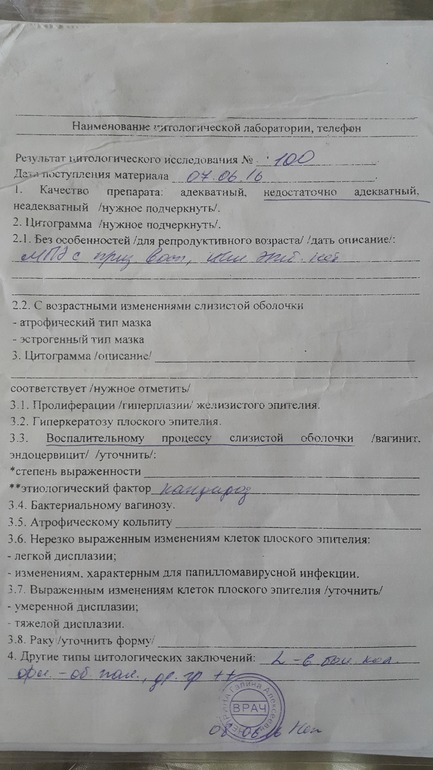 Наименование цитологической лаборатории, телефон
Результат цитологического исследования № 100
Дата поступления материала 07.06.16
1. Качество препарата: адекватный, недостаточно адекватный,
неадекватный /нужное подчеркнуть/.
2. Цитограмма /нужное подчеркнуть/.
2.1. Без особенностей /для репродуктивного возраста/ /дать описание/:
МПЭ с приз восп, кл эпит. нет
2.2. С возрастными изменениями слизистой оболочки
- атрофический тип мазка
- эстрогенный тип мазка
3. Цитограмма /описание/
соответствует /нужное отметить/
3.1. Пролиферации /гиперплазии/ железистого эпителия.
3.2. Гиперкератозу плоского эпителия.
3.3. Воспалительному процессу слизистой оболочки /вагинит,
эндоцервицит/ /уточнить/:
*степень выраженности
**этиологический фактор кандидоз
3.4. Бактериальному вагинозу.
3.5. Атрофическому кольпиту
3.6. Нерезко выраженным изменениям клеток плоского эпителия:
- легкой дисплазии;
- изменениям, характерным для папилломавирусной инфекции.
3.7. Выраженным изменениям клеток плоского эпителия /уточнить/
- умеренной дисплазии;
- тяжелой дисплазии.
3.8. Раку /уточнить форму/
4. Другие типы цитологических заключений: L - в бол кол.
др. гр ++
Галина Алексеевна
ВРАЧ
08.06.16